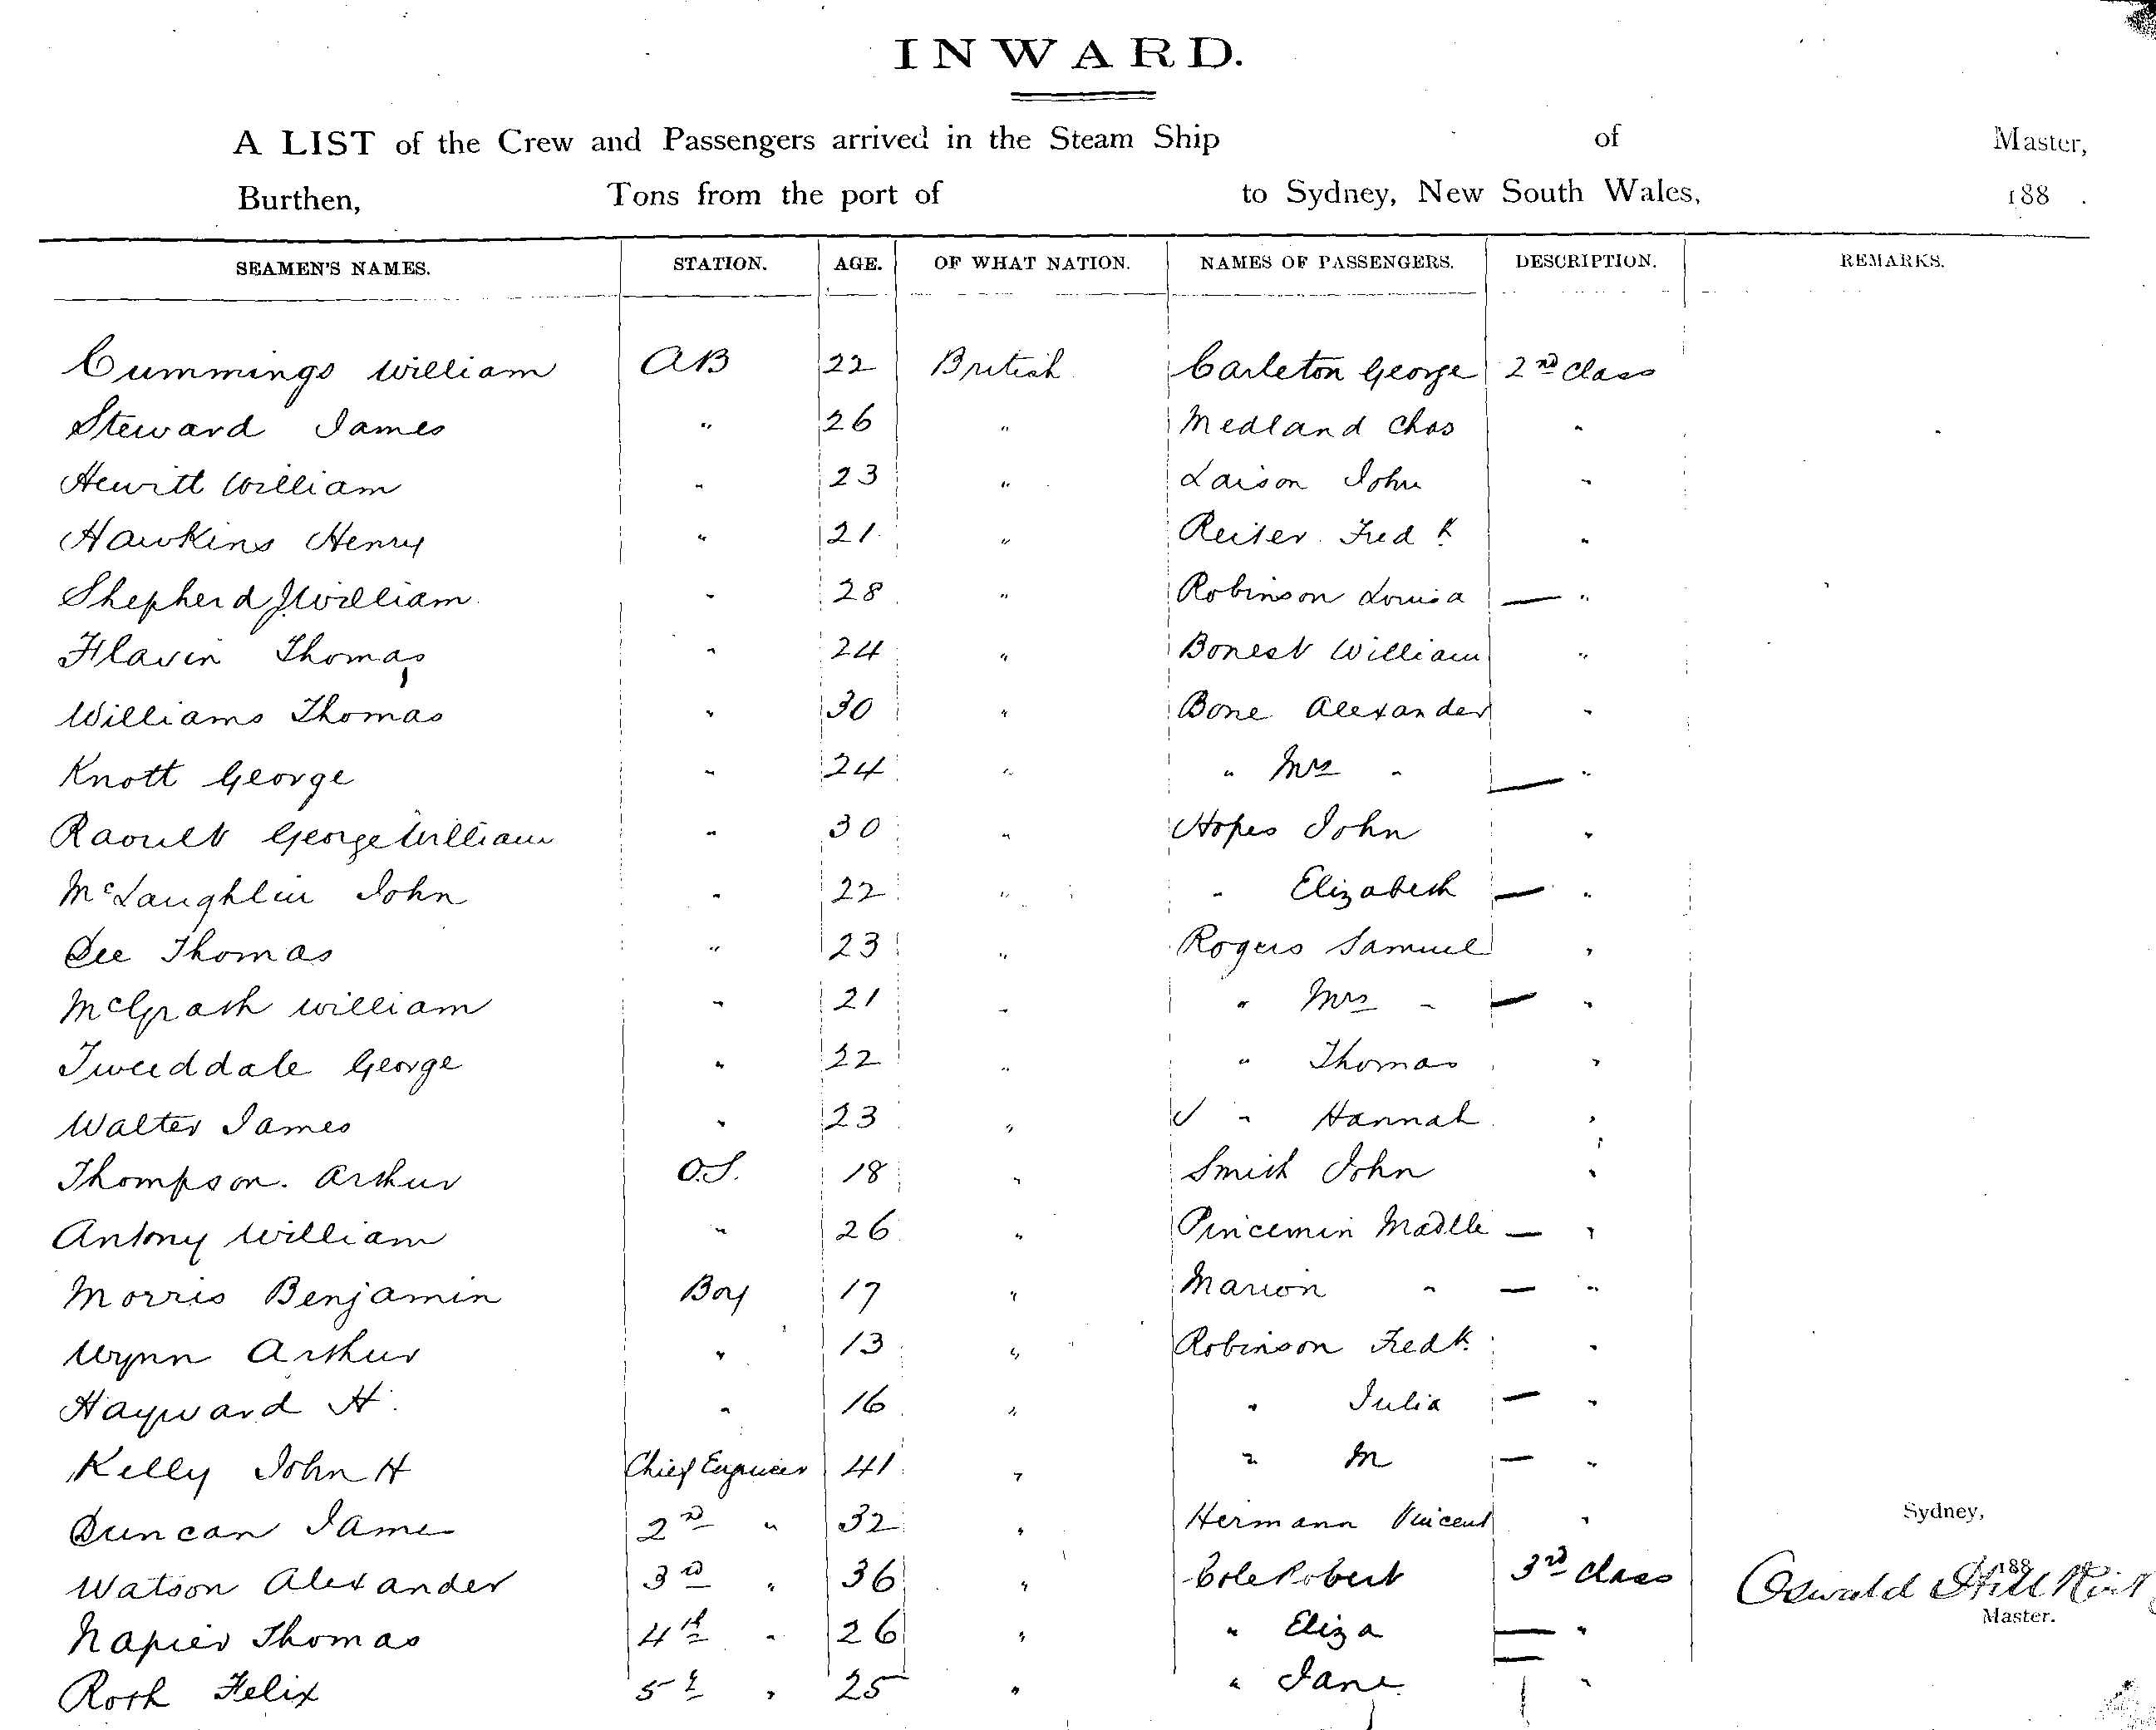 INWARD.
A LIST of the Crew and Passengers arrived in the Steam Ship of Master,
Burthen, Tons from the port of to Sydney, New South Wales, 188 .
SEAMEN'S NAMES. STATION. AGE. OF WHAT NATION. NAMES OF PASSENGERS. DESCRIPTION. REMARKS.
Cummings William AB 22 British Carleton George 2nd Class
Steward James " 26 " Medland Chas "
Hewitt William " 23 " Laison John "
Hawkins Henry " 21 " Reiser Fredk "
Shepherd J William " 28 " Robinson Louisa — "
Flavin Thomas " 24 " Bonest William "
Williams Thomas " 30 " Bone Alexander "
Knott George " 24 " " Mrs " — "
Raoult George William " 30 " Hopes John "
McLaughlin John " 22 " " Elizabeth — "
Dee Thomas " 23 " Rogers Samuel "
McGrath William " 21 " " Mrs " — "
Tweeddale George " 22 " " Thomas "
Walter James " 23 " " Hannah "
Thompson. Arthur O.S. 18 " Smith John "
Antony William " 26 " Pincemin Madlle — "
Morris Benjamin Boy 17 " Marion " — "
Wynn Arthur " 13 " Robinson Fredk. "
Hayward H. " 16 " " Julia — "
Kelly John H Chief Engineer 41 " " M — "
Duncan James 2nd " 32 " Hermann Vincent "
Sydney,
Watson Alexander 3rd " 36 " Cole Robert 3rd Class
188
Oswald Hill
Master.
Napier Thomas 4th " 26 " " Eliza — "
Roth Felix 5th " 25 " " Jane "